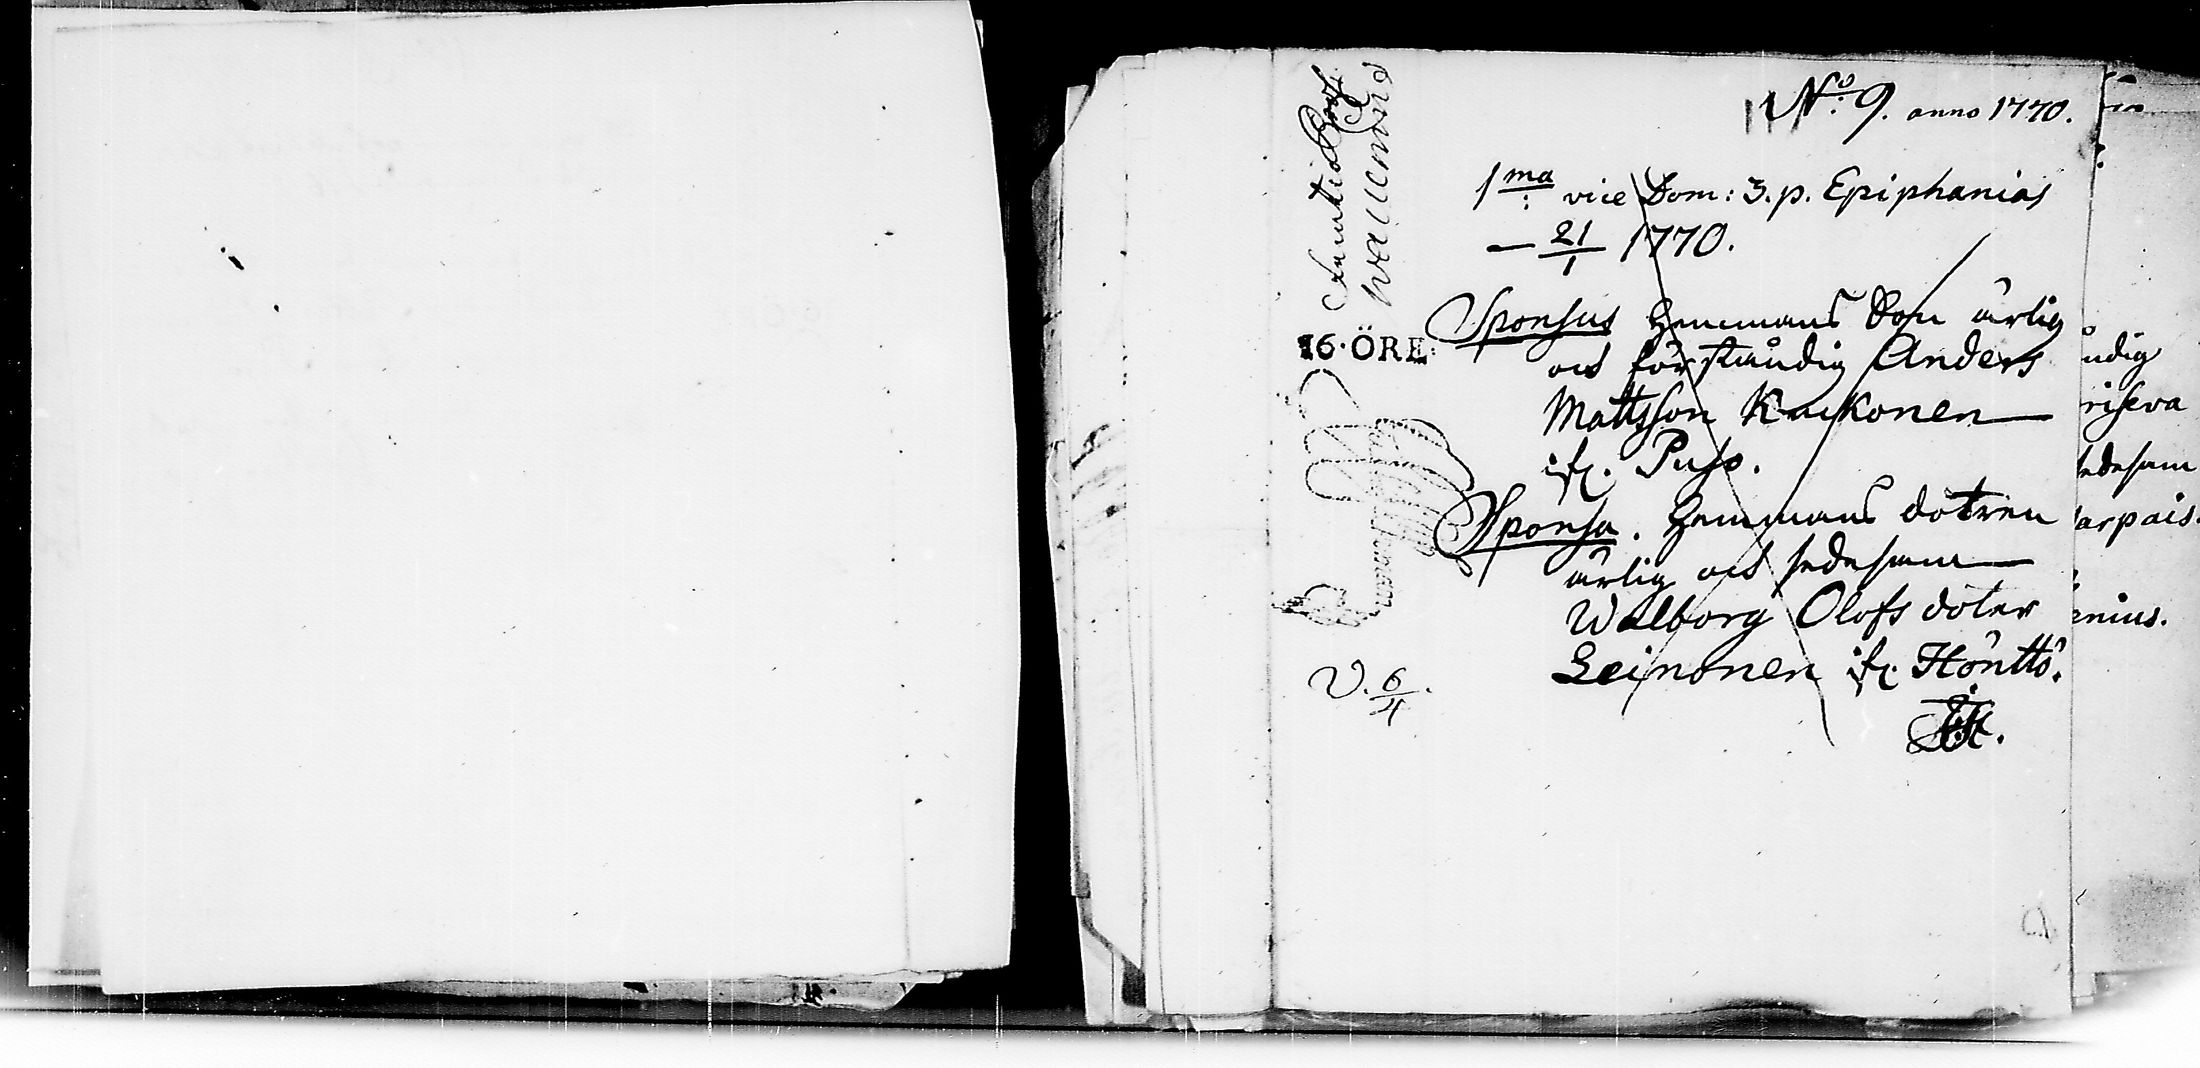 No: 9. anno 1770.
1ma: vice Dom: 3. p. Epiphanias
— 21/1 1770.
Sponsus Hemmans Son ärlig
och förståndig Anders
Mattsson Kaikonen
ifr. Puso.
Sponsa. Hemmans dotren
ärlig och sedesam
Walborg Olofs doter
Leinonen ifr. Hönttö.
16·ÖRE
V. 6/4.
udig
riseva
sedesam
arpais.
enius.